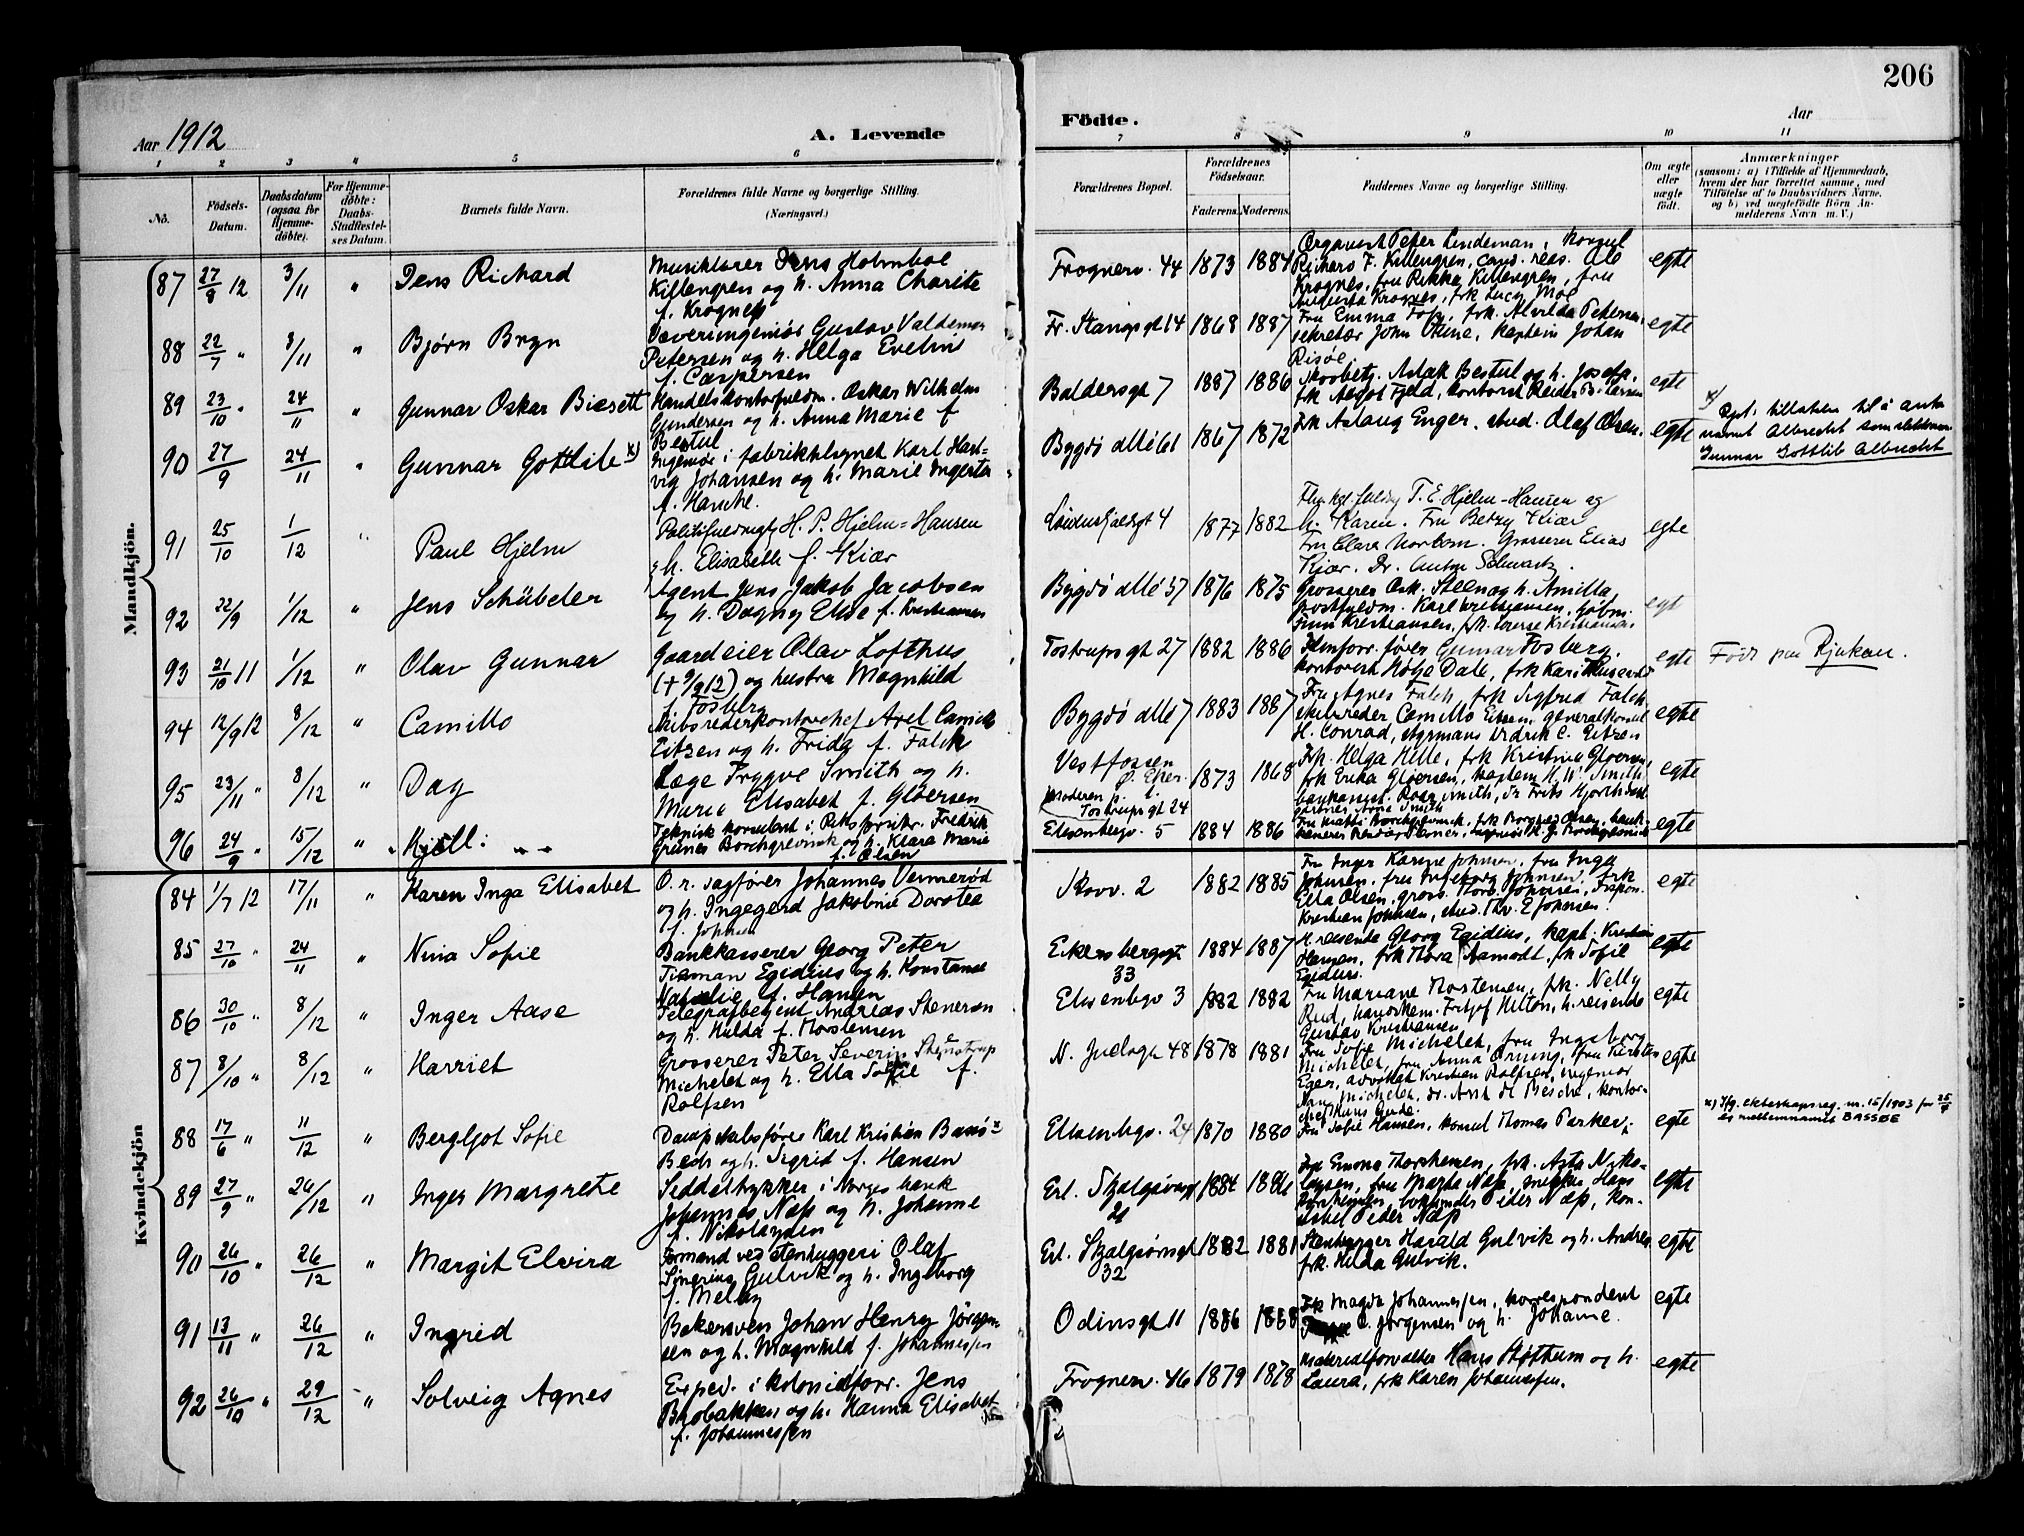 206
Aar 1912
A. Levende
Födte.
Aar
1 2 3 4 5 6 7 8 9 10 11
No.
Födsels-Datum.
Daabsdatum (ogsaa for Hjemme-döbte).
For Hjemme-döbte: Daabs-Stadfæstel-ses Datum.
Barnets fulde Navn.
Forældrenes fulde Navne og borgerlige Stilling.
(Næringsvei.)
Forældrenes Bopæl.
Forældrenes Födselsaar.
Faderens. Moderens.
Faddernes Navne og borgerlige Stilling.
Om ægte eller uægte födt.
Anmærkninger
(saasom: a) i Tilfælde af Hjemmedaab, hvem der har forrettet samme, med Tilföielse af to Daabsvidners Navne, og b) ved uægtefödte Börn An-melderens Navn m. V.)
Mandkjön.
87 27/9 12 3/11 " Jens Richard
Musiklærer Jens Holmboe
Killengren og h. Anna Charite
f. Krognes
Frognerv. 44 1873 1884
Organist Peter Lindeman, konsul
Richard F. Killengren, cand. real. Ole
Krognes, fru Rikka Killengren, fru
Augusta Krognes, frk Lucy Moe
egte
88 22/7 " 3/11 " Bjørn Bryn
Væveriingeniør Gustav Valdemar
Petersen og h. Helga Evelin
f. Caspersen
Fr. Stangsgt 14 1868 1887
Fru Emma Foss, frk. Alvilda Petersen,
sekretær John Utne, kaptein Johan
Risøe
egte
89 23/10 " 24/11 " Gunnar Oskar Bisett
Handelskontorfuldm. Oskar Wilhelm
Gundersen og h. Anna Marie f.
Bestul
Baldersgt 7 1887 1886
Skobetj. Aslak Bestul og h. Josefa,
frk Aagot Fjeld, kontorist Reidar B. Larsen
egte
90 27/9 24/11 " Gunnar Gottlieb x)
Ingeniør i fabriktilsynet Karl Hart-
vig Johansen og h. Marie Ingerta
f. Hanche.
Bygdö allé 61 1867 1872
Frk Aslaug Enger, stud. Olaf Olsen.
egte
x) Dpt. tillatelse til å anta
navnet Albrecht som slektsnavn
Gunnar Gottlib Albrecht
91 25/10 1/12 " Paul Hjelm
Politifuldmægtig H. P. Hjelm-Hansen
og h. Elisabeth f. Kiær
4 1877 1882
T. E. Hjelm-Hansen og
h. Karen. Fru Betzy Kiær
Fru Clara Norbom. Grosserer Elias
Kiær. Dr. Anton Schwartz.
egte
92 22/9 1/12 " Jens Schübeler
Agent Jens Jakob Jacobsen
og h. Dagny Elise f. Kristiansen
Bygdö allé 57 1876 1875
Grosserer Osk. Steen og h. Amilla,
postfuldm. Karl Kristiansen,
Finn Kristiansen, frk. Lovise Kristiansen
egt
93 21/10 11 1/12 " Olav Gunnar
Gaardeier Olav Lofthus
(+ 9/9 12) og hustru Magnhild
f. Fosberg
Tostrupsgt 27 1882 1886
fører Gunnar Fosberg.
kontorist Helge Dale, frk Kari
egte
Född paa Rjukan.
94 12/9 12 8/12 " Camillo
Skibsrederkontorchef Axel Camillo
Eitzen og h. Frida f. Falck
Bygdö allé 7 1883 1887
Fru Agnes Falck, frk Sigfrid Falck
skibsreder Camillo Eitzen, generalkonsul
H. Conrad, styrmand Didrik C. Eitzen
egte
95 23/11 " 8/12 " Dag
Læge Trygve Smith og h.
Marie Elisabet f. Gløersen
Vestfossen
Ø. Eker.
Moderen f.
Tostrupsgt 24
1873 1868
Frk. Helga Hille, frk Kristine Gløersen
frk Erika Gløersen, kaptein N. W. Smith
bankansat. Roar Smith, dr Frits Hjorth
gartner Arne Smith
egte
96 24/9 " 15/12 " " Kjell: " "
Teknisk konsulent i Riksforsikr. Fredrik
Grüner Borchgrevink og h. Klara Marie
f. Olsen
Elisenbergv. 5 1884 1886
Fru Mathi Borchgrevink, frk Borghild Olsen, bank-
egte
Kvindekjön
84 1/7 12 17/11 " Karen Inga Elisabet
O. r. sagfører Johannes Vennerød
og h. Ingegerd Jakobine Dorotea
f. Johnsen
Skovv. 2 1882 1885
Fru Inger Karine Johnsen, fru Inger
Johnsen, fru Ingeborg Johnsen, frk
Ella Olsen, gross. Thorv. Johnsen,
Kristian Johnsen, stud. Thv. E Johnsen.
egte
85 27/10 " 24/11 " Nina Sofie
Bankkasserer Georg Peter
Tisman Egidius og h. Konstanse
Natalie f. Hansen
Eckersbergsgt 33 1884 1887
H. reisende Georg Egidius, kapt. Kristian
Hansen, frk Thora Aamodt, frk Sofie
Egidius.
egte
86 30/10 " 8/12 " Inger Aase
Telegrafbetjent Andreas Stenersen
og h. Hulda f. Thorstensen
Elisenbgv 3 1882 1882
Fru Mariane Thorstensen, frk. Nelly
Rud, handelsm. Fritjof Hilton, h. reisende
Gustav Kristiansen
egte
87 8/10 " 8/12 " Harriet
Grosserer Peter Severin Stenstrup
Michelet og h. Ella Sofie f.
Rolfsen
N. Juelsgt 48 1878 1881
Fru Sofie Michelet, fru Ingeborg
Michelet, fru Anna Ørning, fru Kirsten
Eger, advokat Kristian Rolfsen, ingeniør
Michelet, dr. Arnt H Besche, kontor-
chef Hans Gude.
egte
88 17/6 " 11/12 " Bergljot Sofie
Dampskibsfører Karl Kristian Bassö x
Bech og h. Sigrid f. Hansen
Elisenbgv. 24 1870 1880
Fru Sofie Hansen, konsul Thomas Parker,
egte
x) Ifg. ekteskapsreg. nr. 15/1903 for
es mellemnavnet BASSØE
89 27/9 " 26/12 " Inger Margrete
Seddeltrykker i Norges bank
Johannes Næss og h. Johanne
f. Nikolaysen
Erl. Skjalgsönsgt 21 1884 1886
Frk Emma Thorstensen, frk. Asta Niko-
laysen, fru Marta Næss, snekker Hans
Thorstensen, bokbinder Peder Næss, kon-
stabel Peder Næss
egte
90 26/10 " 26/12 " Margit Elvira
Formand ved stenhuggeri Olaf
Simerius Gulvik og h. Ingeborg
f. Melby
Erl. Skjalgsönsgt 32 1882 1881
Stenhugger Harald Gulvik og h. Andrea
frk. Hilda Gulvik.
egte
91 13/11 " 26/12 " Ingrid
Bakersven Johan Henry Jörgen-
sen og h. Magnhild f. Johannessen
Odinsgt 11 1886 1888
Frk Magda Johannessen, korrespondent
Jørgensen og h. Johanne.
egte
92 26/10 " 29/12 " Solveig Agnes
Exped. i kolonialforr. Jens
Brobakken og h. Hanna Elisabet
f. Johannessen
Frognerv. 46 1879 1878
Materialforvalter Hans Støttum og h.
Laura, frk Karen Johannessen.
egte